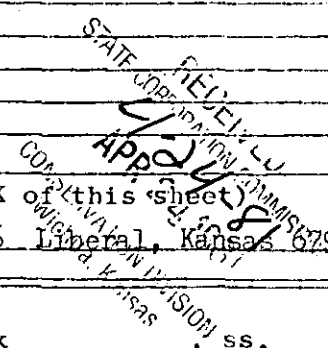 RECEIVED
STATE CORPORATION COMMISSION
4-24-81
APR
CONSERVATION DIVISION
Wichita, Kansas
of this sheet)
Liberal, Kansas 679
ss.